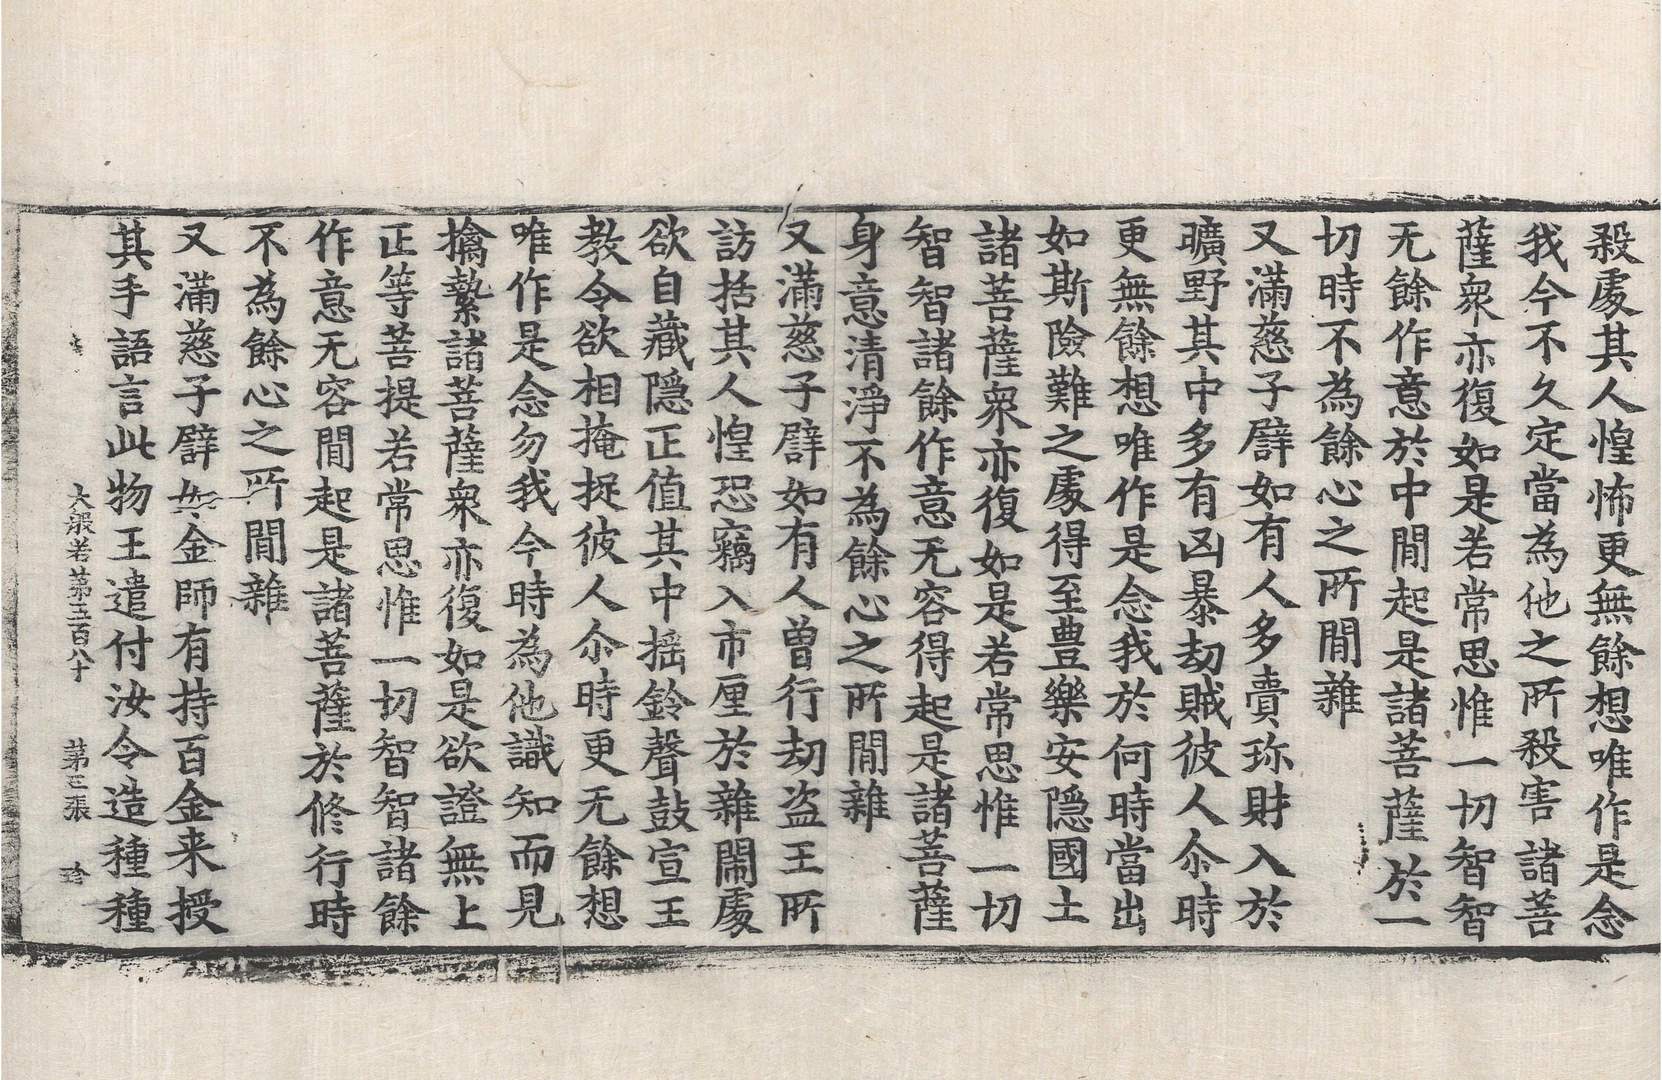 殺處其人惶怖更無餘想唯作是念
我今不久定當為他之所殺害諸菩
薩衆亦復如是若常思惟一切智智
无餘作意於中閒起是諸菩薩於一
切時不為餘心之所閒雜
又滿慈子譬如有人多賷珎財入於
曠野其中多有凶暴劫賊彼人尒時
更無餘想唯作是念我於何時當出
如斯險難之處得至豊樂安隱國土
諸菩薩衆亦復如是若常思惟一切
智智諸餘作意无容得起是諸菩薩
身意清淨不為餘心之所閒雜
又滿慈子譬如有人曾行劫盗王所
訪括其人惶恐竊入市厘於雜閙處
欲自藏隱正值其中揺鈴聲鼓宣王
教令欲相掩捉彼人尒時更无餘想
唯作是念勿我今時為他識知而見
擒縶諸菩薩衆亦復如是欲證無上
正等菩提若常思惟一切智智諸餘
作意无容閒起是諸菩薩於修行時
不為餘心之所閒雜
又滿慈子譬如金師有持百金来授
其手語言此物王遣付汝令造種種
大般若第五百八十 第三張 珎